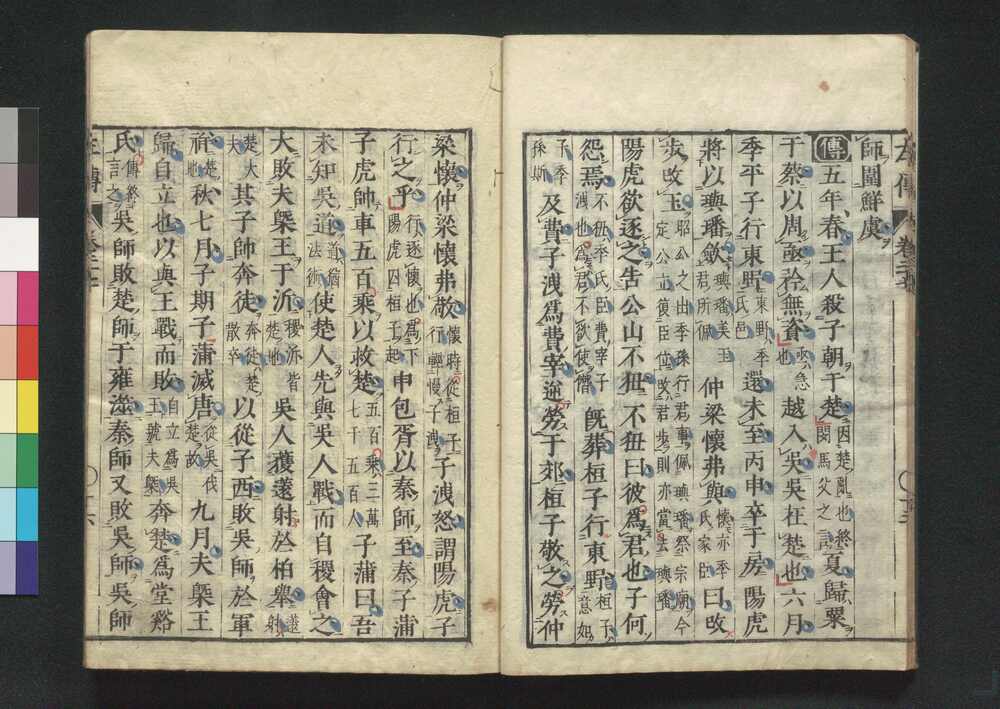 師圍鮮虞
傳五年春王人殺子朝于楚因楚亂也終閔馬父之言夏歸粟
于蔡以周亟矜無資亟急也越入吳吳在楚也六月
季平子行東野東野季氏邑還未至丙申卒于房陽虎
將以璵璠斂璵璠美玉君所佩仲梁懷弗與懷亦季氏家臣曰改
步改玉昭公之出季孫行君事佩璵璠祭宗廟今定公立復臣位改君步則亦當去璵璠
陽虎欲逐之告公山不狃不狃曰彼爲君也子何
怨焉不狃季氏臣費宰子洩也爲君不欲使僭旣葬桓子行東野桓子意如
子季孫斯及費子洩爲費宰逆勞于郊桓子敬之勞仲
梁懷仲梁懷弗敬懷時從桓子行輕慢子洩子洩怒謂陽虎子
行之乎行逐懷也爲下陽虎囚桓子起申包胥以秦師至秦子蒲
子虎帥車五百乘以救楚五百乘三萬七千五百人子蒲曰吾
未知吳道道猶法術使楚人先與吳人戰而自稷會之
大敗夫槩王于沂稷沂皆楚地吳人獲薳射於柏舉薳射
楚大夫其子帥奔徒奔徒楚散卒以從子西敗吳師於軍
祥楚地秋七月子期子蒲滅唐從吳伐楚故九月夫槩王
歸自立也以與王戰而敗自立爲吳王號夫槩奔楚爲堂谿
氏傳終言之吳師敗楚師于雍澨秦師又敗吳師吳師